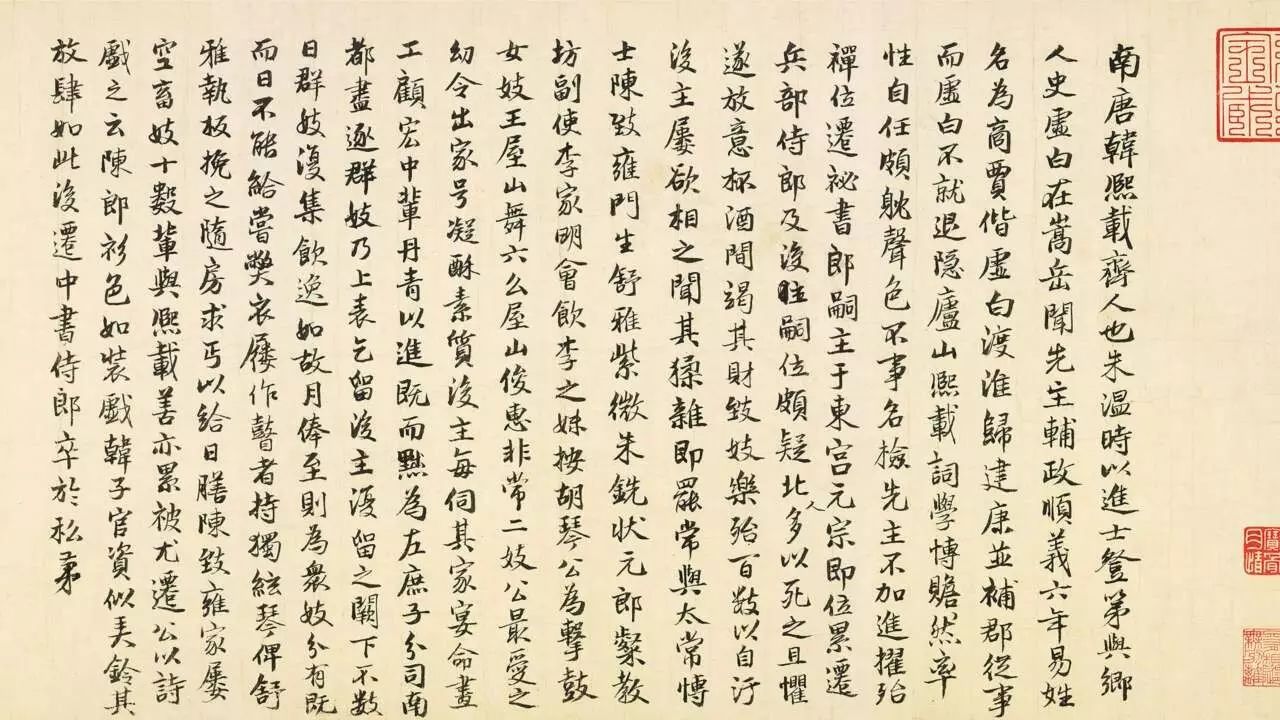 南唐韓熙載齊人也朱溫時以進士登第與鄉
人史虛白在嵩岳聞先主輔政順義六年易姓
名為商賈偕虛白渡淮歸建康並補郡從事
而虛白不就退隱廬山熙載詞學博贍然率
性自任頗躭聲色不事名檢先主不加進擢殆
禪位遷祕書郎嗣主于東宮元宗即位累遷
兵部侍郎及後主嗣位頗疑北人多以死之且懼
遂放意杯酒間竭其財致妓樂殆百數以自汙
後主屢欲相之聞其猱雜即罷常與太常博
士陳致雍門生舒雅紫微朱銑状元郎粲教
坊副使李家明會飲李之妹按胡琴公為擊鼓
女妓王屋山舞六幺屋山俊惠非常二妓公最愛之
幼令出家号凝酥素質後主每伺其家宴命畫
工顧宏中輩丹青以進既而黜為左庶子分司南
都盡逐群妓乃上表乞留後主復留之闕下不数
日群妓復集飲逸如故月俸至則為衆妓分有既
而日不能給嘗弊衣屨作瞽者持獨絃琴俾舒
雅執板挽之隨房求丐以給日膳陳致雍家屢
空畜妓十數輩與熙載善亦累被尤遷公以詩
戲之云陳郎衫色如裝戲韓子官資似美鈴其
放肆如此後遷中書侍郎卒於私第